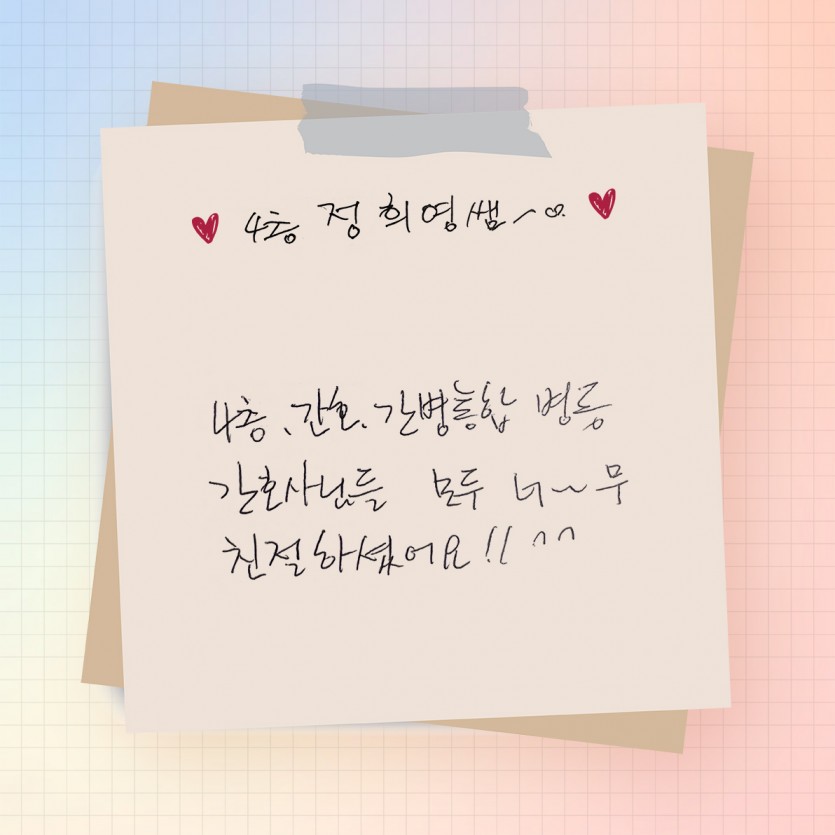 4층 정희영쌤~♡
4층, 간호, 간병통합 병동
간호사님들 모두 너~~무
친절하셨어요!! ^^